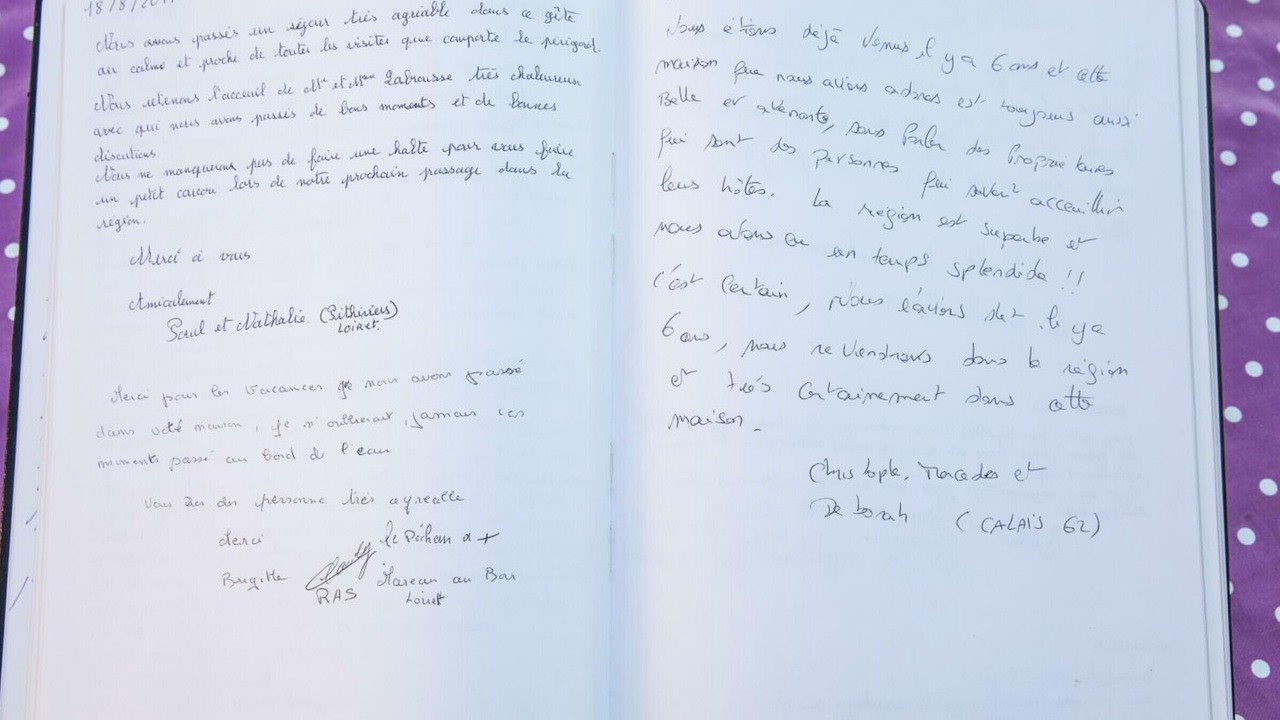 18/8/20
Nous avons passés un séjour très agréable dans ce gîte
au calme et proche de toutes les visites que comporte le périgord.
Nous retenons l'acceuil de Mr et Mme Labrousse très chaleureux
avec qui nous avons passés de bons moments et de bonnes
discutions.
Nous ne manquerons pas de faire une halte pour vous faire
un petit coucou lors de notre prochain passage dans la
région.
Merci à vous
Amicalement
Paul et Nathalie. (Pithiviers)
LOIRET.
Merci pour les vacances que nous avons passé
dans voté maison, je n'oublierait jamais ces
moments passé au bord de l'eau
Vous des personne très agréable
Merci
le Pécheur
Brigitte
Mareau au Bois
RAS
Loiret
Nous étions déjà venus il y a 6 ans et cette
maison que nous avions adorés est toujours aussi
Belle et avenante, sans Parler des Propriétaires
qui sont des personnes qui savent acceuillir
leurs hôtes. La région est superbe et
nous avons eu un temps splendide !!
C'est certain, Nous l'avions dit il y a
6 ans, nous reviendrons dans la région
et très certainement dans cette
maison.
Christophe, et
Deborah (CALAIS 62)